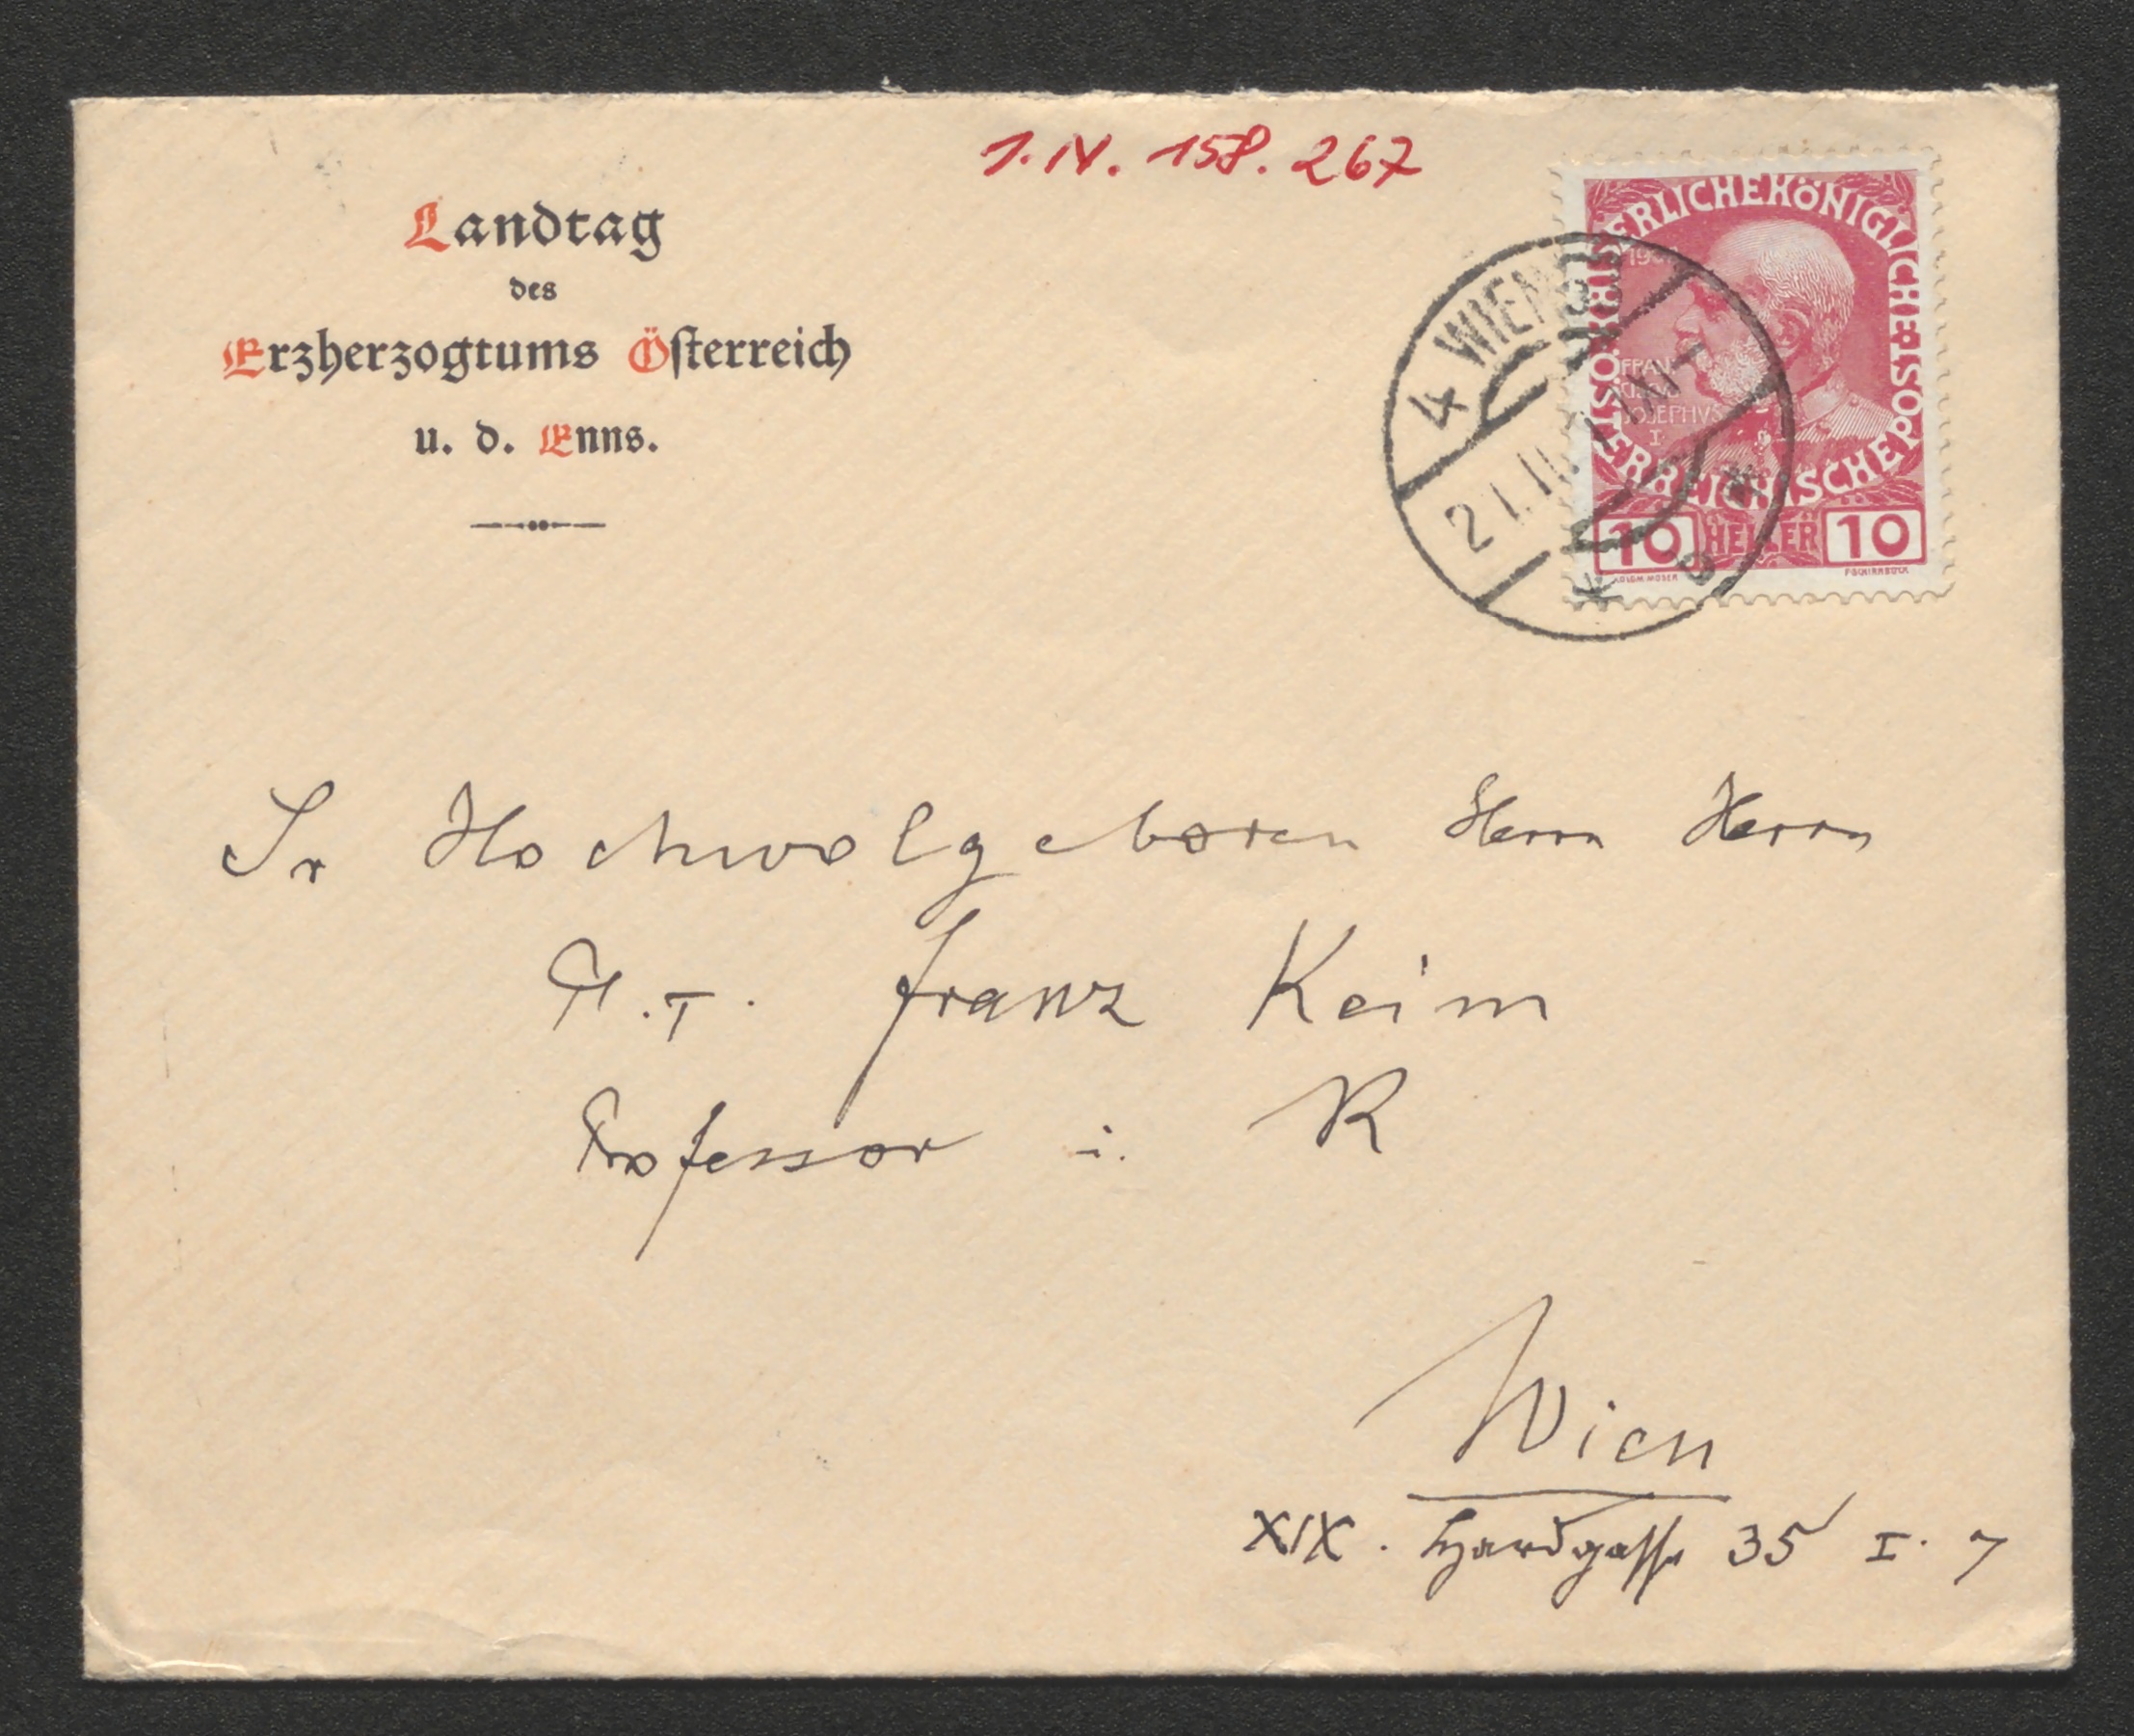 1. IV. 158. 267
Landtag
des
Erzherzogtums Öſterreich
u. d. Enns.
KAISERLICHE KÖNIGLICHE ÖSTERREICHISCHE POST
FRAN
CISCVS
JOSEPHVS
I
10 HELLER 10
KOLOM. MOSER
F. SCHIRNBÖCK
4 WIEN
21. II
Sr Hochwolgeboren Herrn Herrn
P. T. Franz Keim
Professor i. R
Wien
XIX. Hardgasse 35 I. 7